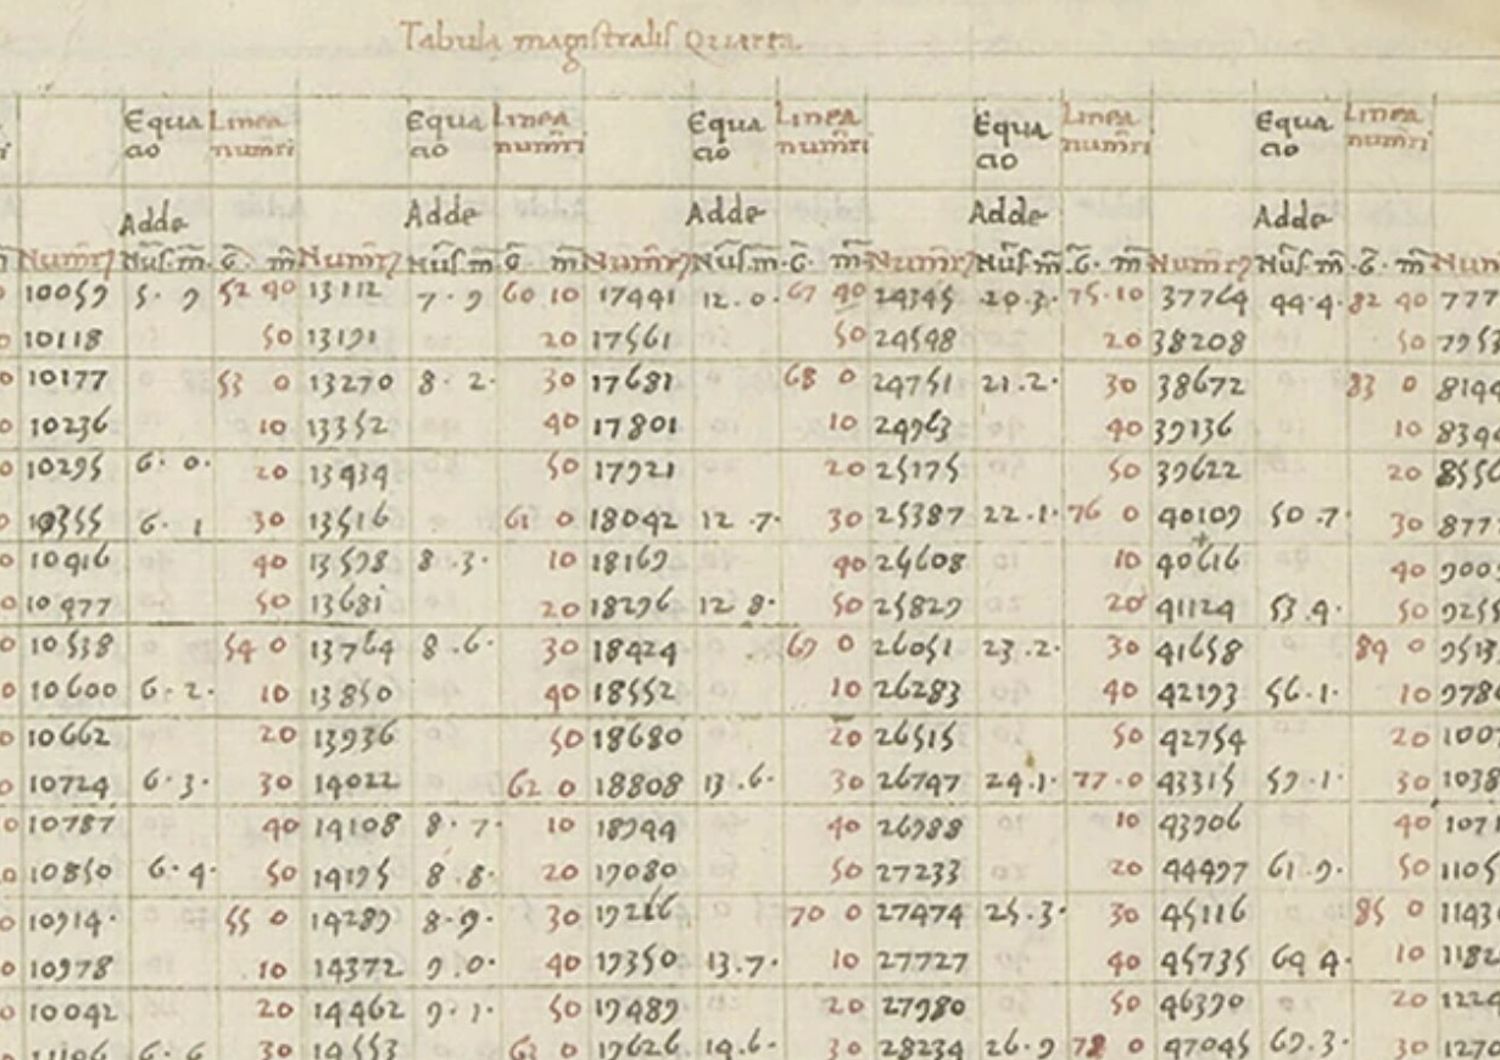 Tabula magistralis Quarta.
Equa Linea Equa Linea Equa Linea Equa Linea Equa Linea
cio numri cio numri cio numri cio numri cio numri
Adde Adde Adde Adde Adde
Numri Nūs. m. G. m Numri Nūs. m G. m Numri Nūs. m. G. m Numri Nūs. m. G. m Numri Nūs. m. G. m Num
0 10059 5. 9 52 40 13112 7. 9 60 10 17441 12. 0. 67 40 24345 20. 3. 75. 10 37764 44. 4. 82 40 777
0 10118 50 13191 20 17561 50 24548 20 38208 50 7953
0 10177 53 0 13270 8. 2. 30 17681 68 0 24751 21. 2. 30 38672 83 0 8144
0 10236 10 13352 40 17801 10 24963 40 39136 10 834
0 10295 6. 0. 20 13434 50 17921 20 25175 50 39622 20 8556
0 10355 6. 1 30 13516 61 0 18042 12. 7. 30 25387 22. 1. 76 0 40109 50. 7. 30 877
0 10416 40 13598 8. 3. 10 18169 40 25608 10 40616 40 900
0 10477 50 13681 20 18296 12 8. 50 25829 20 41124 53. 4. 50 925
0 10538 54 0 13764 8. 6. 30 18424 69 0 26051 23. 2. 30 41658 84 0 951
0 10600 6. 2. 10 13850 40 18552 10 26283 40 42193 56. 1. 10 978
0 10662 20 13936 50 18680 20 26515 50 42754 20 100
0 10724 6. 3. 30 14022 62 0 18808 13. 6. 30 26747 24. 1. 77. 0 43315 59. 1. 30 1038
0 10787 40 14108 8. 7. 10 18944 40 26988 10 43906 40 107
0 10850 6. 4. 50 14195 8. 8. 20 19080 50 27233 20 44497 61. 9. 50 1105
0 10914. 55 0 14284 8. 9. 30 19216 70 0 27474 25. 3. 30 45116 85 0 1143
0 10978 10 14372 9. 0. 40 19350 13. 7. 10 27727 40 45735 64 4. 10 1182
0 10042 20 14462 9. 1. 50 19489 20 27980 50 46390 20 122
11106 6. 6 30 14553 63 0 19626 14. 6. 30 28234 26. 9 78 0 47045 69. 3. 30 1270